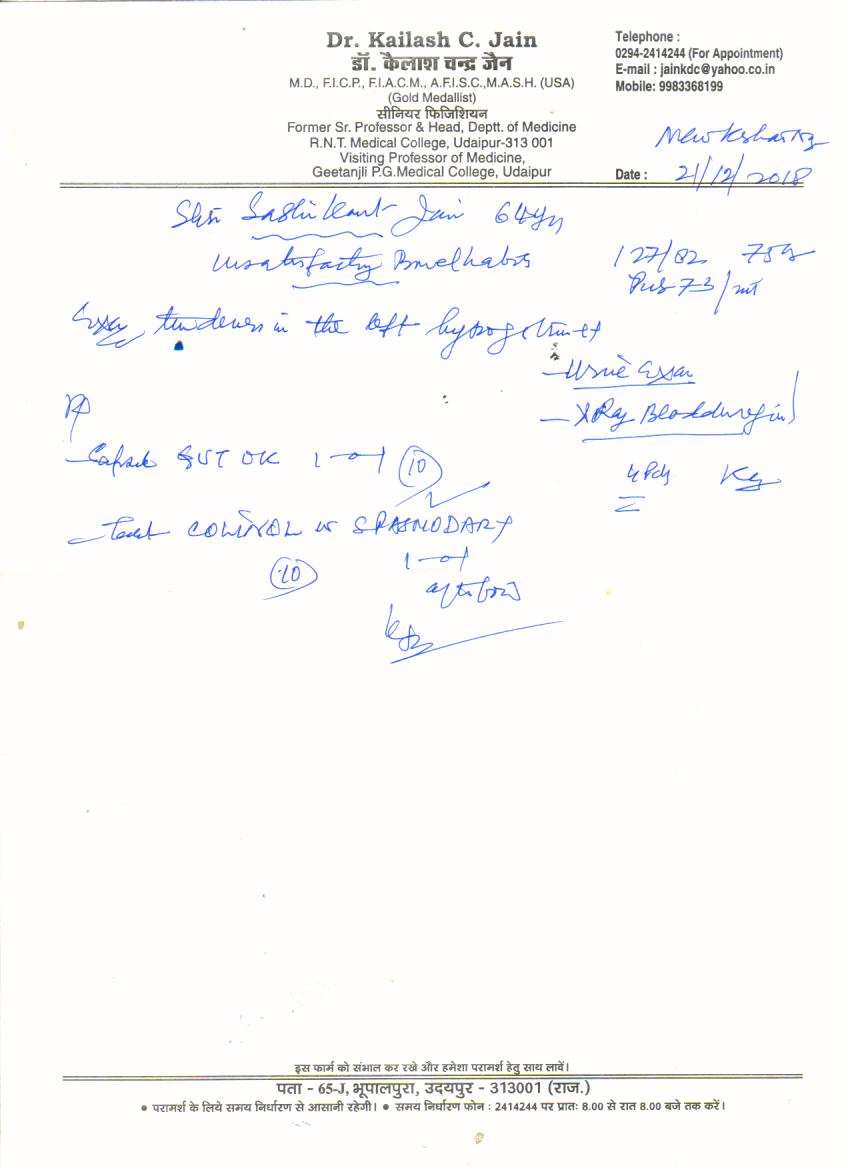 Dr. Kailash C. Jain
डॉ. कैलाश चन्द्र जैन
M.D., F.I.C.P., F.I.A.C.M., A.F.I.S.C.,M.A.S.H. (USA)
(Gold Medallist)
सीनियर फिजिशियन
Former Sr. Professor & Head, Deptt. of Medicine
R.N.T. Medical College, Udaipur-313 001
Visiting Professor of Medicine,
Geetanjli P.G.Medical College, Udaipur
Telephone :
0294-2414244 (For Appointment)
E-mail : jainkdc@yahoo.co.in
Mobile: 9983368199
Date : 21/12/2018
Jain 64
unsatisfactory Bowelhabits
127/82
73/mt
tenderness in the left
- Urine Exam
- X Ray
Rx
1-0-1 10
- COLINOL or SPASMODART
10 1-0-1
इस फार्म को संभाल कर रखे और हमेशा परामर्श हेतु साथ लावें।
पता - 65-J, भूपालपुरा, उदयपुर - 313001 (राज.)
● परामर्श के लिये समय निर्धारण से आसानी रहेगी। ● समय निर्धारण फोन : 2414244 पर प्रातः 8.00 से रात 8.00 बजे तक करें।